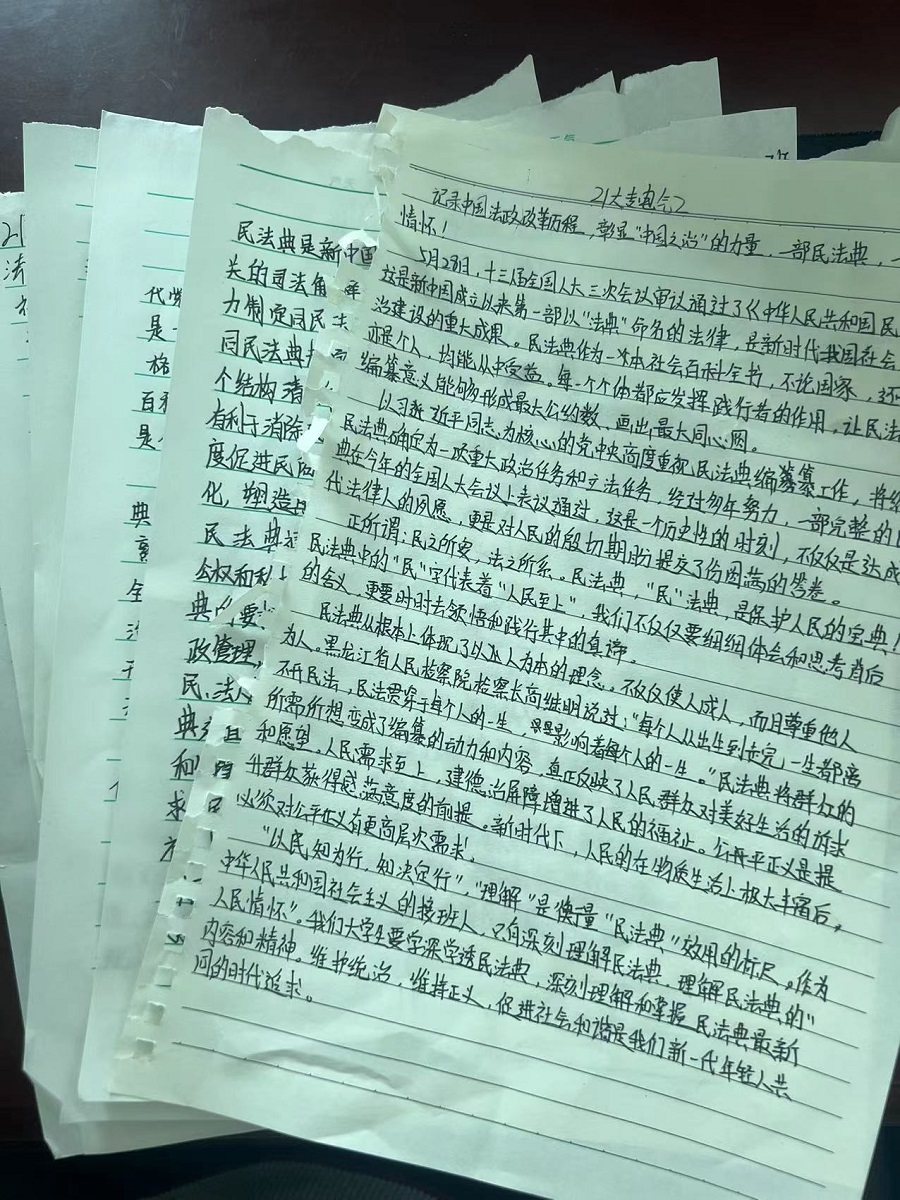 21大专电气2
记录中国法政改革历程,彰显"中国之治"的力量,一部民法典,一
情怀!
5月28日,十三届全国人大三次会议审议通过了《中华人民共和国民
这是新中国成立以来第一部以"法典"命名的法律,是新时代我国社会
治建设的重大成果。民法典作为一本社会百科全书,不论国家,还
亦是个人,均能从中受益。每一个个体都应发挥践行者的作用,让民法
编纂意义能够形成最大公约数,画出最大同心圆。
以习近平同志为核心的党中央高度重视民法典编纂工作,将编
民法典确定为一项重大政治任务和立法任务,经过多年努力,一部完整的
典在今年的全国人大会议上表议通过,这是一个历史性的时刻,不仅仅是达成
代法律人的夙愿,更是对人民的殷切期盼提交了份圆满的答卷。
正所谓:民之所安,法之所系。民法典,"民"法典,是保护人民的宝典!
民法典中的"民"字代表着"人民至上",我们不仅仅要细细体会和思考背后
的含义,更要时时去领悟和践行其中的真谛。
民法典从根本上体现了以人为本的理念。不仅仅使人成人,而且尊重他人
为人。黑龙江省人民检察院检察长高继明说过:"每个人从出生到走完一生都离
不开民法,民法贯穿于每个人的一生,影响着每个人的一生。"民法典将群众的
所需所想变成了编纂的动力和内容,真正反映了人民群众对美好生活的诉求
和愿望,人民需求至上,建德治屏障增进了人民的福祉。公平正义是提
升群众获得感满意度的前提。新时代下,人民的在物质生活上极大丰富后,
必须对公平正义有更高层次需求。
"以民知为行,知决定行""理解"是衡量"民法典"效用的标尺。作为
中华人民共和国社会主义的接班人,只有深刻理解民法典,理解民法典的"
人民情怀"。我们大学生要学深学透民法典,深刻理解和掌握民法典最新
内容和精神。维护统治,维持正义,促进社会和谐是我们新一代年轻人共
同的时代追求。
民法典是新中国
关的司法角
力制度同民
同民法典
个结构
有利于消除
度促进民
化,塑造
民法典
公权和私
典的要
政管理,
民、法人
典
和
求
21
法
代
是一
格
百科
是
典
全